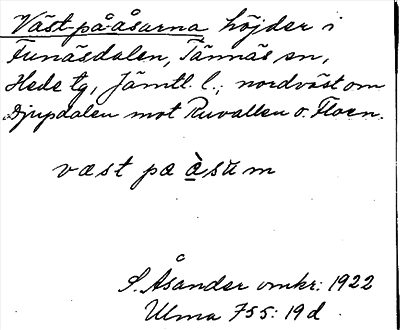 Väst-på-åsarna höjder i
Funäsdalen, Tännäs sn,
Hede tg, Jämtl. l.; nordväst om
Djupdalen mot Ruvallen o. Floen.
væst pæ æ̀sŭm
S. Åsander omkr: 1922
Ulma 755: 19 d.